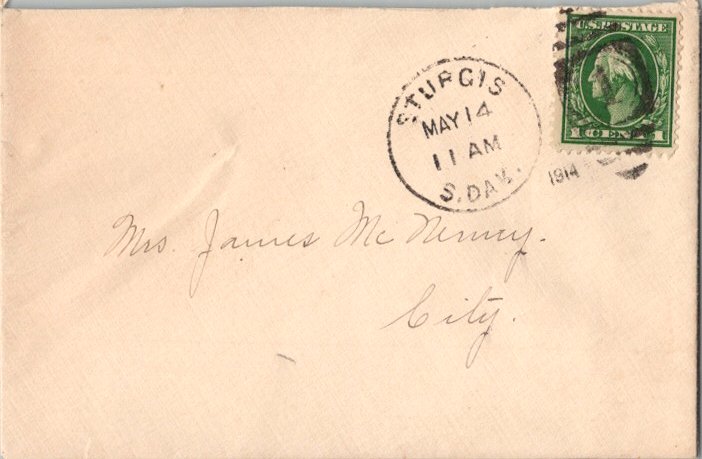 U.S. POSTAGE
1 CENT 1
STURGIS
MAY 14
11 AM
S. DAK.
1914
Mrs. James McNerney.
City.